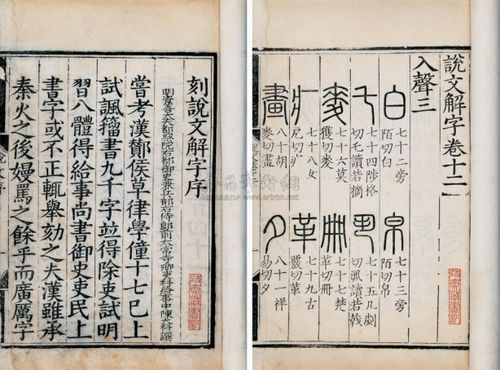 刻說文解字序
兵部右侍郎前太常寺卿吏科給事中陳大科撰
嘗考漢鄭侯草律學僮十七已上
試諷籀書九千字竝得除吏試明
習八體得給事尚書御史吏民上
書字或不正輒舉劾之夫漢雖承
秦火之後嫚罵之餘乎而廣厲字
說文解字卷十二
入聲三
白 七十二旁陌切白 帛 七十三旁陌切帛
乇 七十四陟格切乇讀若摘 丮 七十五几劇切丮讀若戟
麥 七十六莫獲切麥 冊 七十七楚革切冊
疒 七十八女戹切疒 革 七十九古覈切革
畫 八十胡麥切畫 夕 八十一祥易切夕